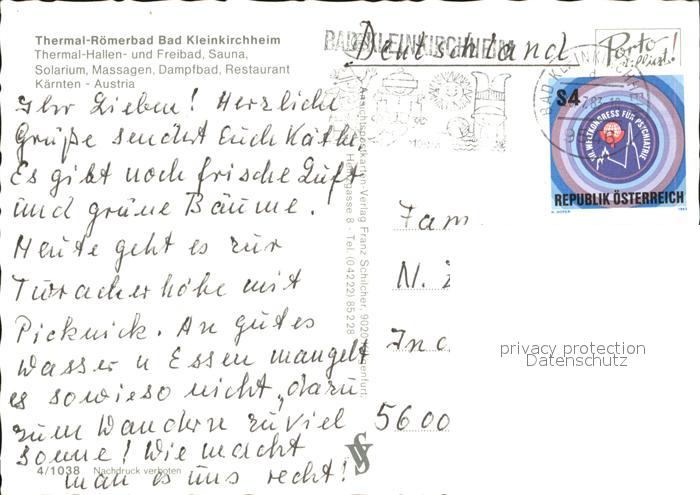 Thermal-Römerbad Bad Kleinkirchheim
Thermal-Hallen- und Freibad, Sauna,
Solarium, Massagen, Dampfbad, Restaurant
Kärnten - Austria
Ihr Lieben! Herzliche
Grüße sendet Euch Käthe
Es gibt noch frische Luft
und grüne Bäume.
Heute geht es zur
Turacherhöhe mit
Picknick. An gutes
Wasser u Essen mangelt
es sowieso nicht, dazu
zum Wandern zu viel
Sonne! Wie macht
man es uns recht!
4/1038 Nachdruck verboten
Ansichtskarten-Verlag Franz Schilcher, 9020
gasse 8 - Tel. (04222) 85 228
BAD KLEINKIRCHHEIM
Deutschland
Porto
BAD KLEINKIRCHHEIM
S4
WELTKONGRESS FÜR PSYCHIATRIE
REPUBLIK ÖSTERREICH
Fam
N.
5600
privacy protection
Datenschutz